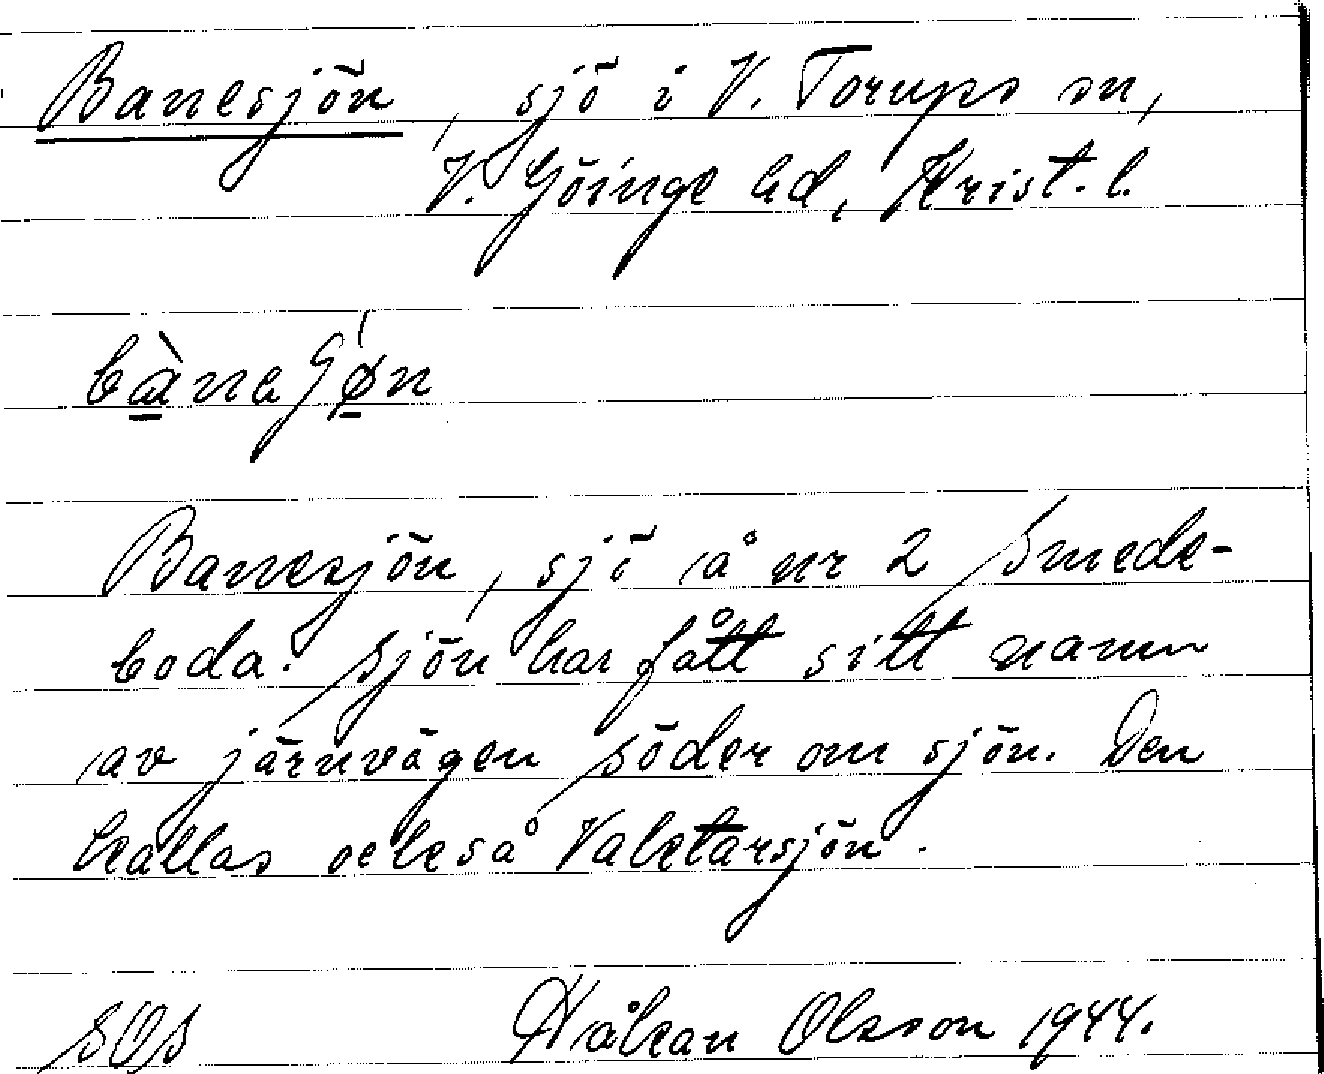 Banesjön, sjö i V. Torups sn,
V. Göinge hd, Krist. l.
Banesjön, sjö å nr 2 Smede-
boda. Sjön har fått sitt namn
av järnvägen söder om sjön. Den
kallas också Vaktarsjön.
SOS Håkan Olsson 1944.